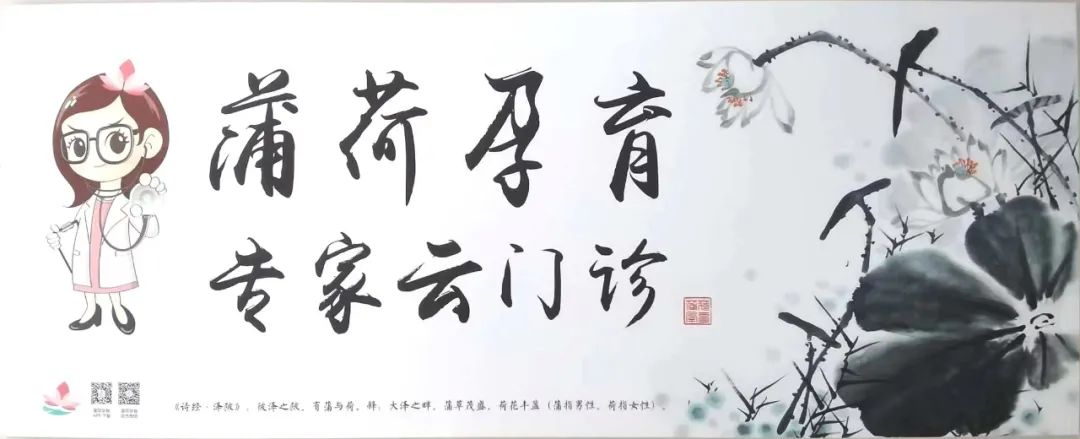 蒲荷孕育
专家云门诊
《诗经·泽陂》，彼泽之陂，有蒲与荷。释：大泽之畔，蒲草茂盛，荷花丰盖（蒲指男性，荷指女性）。